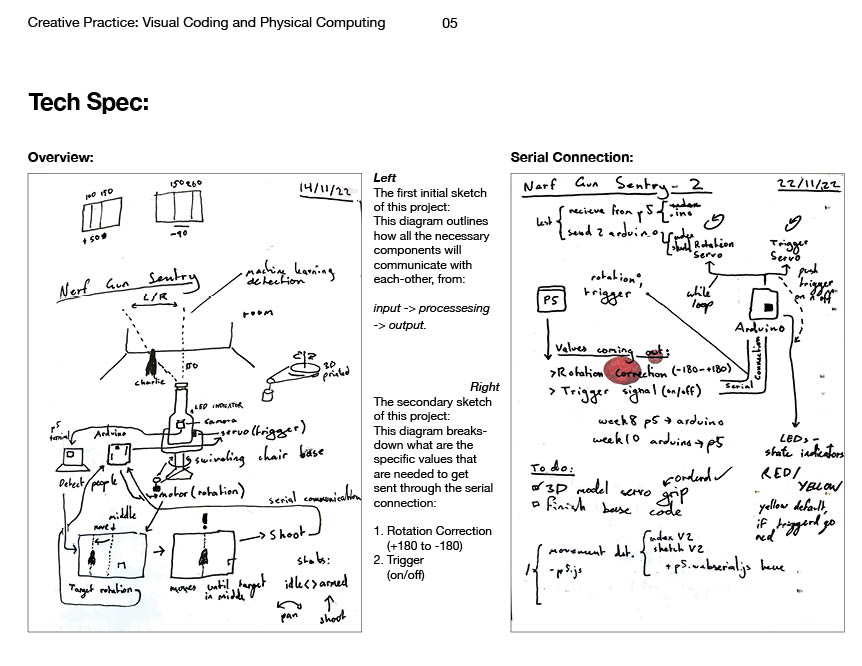 Creative Practice: Visual Coding and Physical Computing
05
Tech Spec:
Overview:
14/11/22
100 150
+50
150 200
-90
Nerf Gun Sentry
machine learning
detection
L/R
room
charlie
150
3D
printed
LED INDICATOR
camera
servo (trigger)
swiveling chair base
p5
terminal
Arduino
Detect people
motor (rotation)
serial communication
middle
move
Shoot
Target rotation
moves until target
in middle
stats:
idle <> armed
pan
shoot
Left
The first initial sketch
of this project:
This diagram outlines
how all the necessary
components will
communicate with
each-other, from:
input -> processesing
-> output.
Right
The secondary sketch
of this project:
This diagram breaks-
down what are the
specific values that
are needed to get
sent through the serial
connection:
1. Rotation Correction
(+180 to -180)
2. Trigger
(on/off)
Serial Connection:
Nerf Gun Sentry - 2
22/11/22
recieve from p5
index
.ino
send 2 arduino
index
Rotation
Servo
Trigger
Servo
rotation°,
trigger
while
loop
push
trigger
on n off
P5
Arduino
Values coming out:
> Rotation Correction (-180-+180)
> Trigger signal (on/off)
serial
connection
week 8 p5 → arduino
week 10 arduino → p5
LEDs -
state indicators
RED/
YELLOW
yellow default,
if triggerd go
red
To do:
orderd ✓
3D model servo grip
Finish base code
movement det.
- p5.js
index V2
sketch V2
+ p5.webserial.js